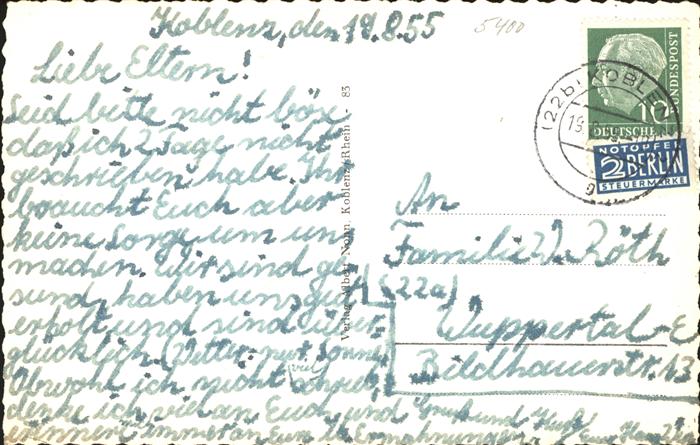 Koblenz, den 19.8.55
5400
Liebe Eltern!
Seid bitte nicht böse
daß ich 2 Tage nicht
geschrieben habe. Ihr
braucht Euch aber
keine Sorge um uns
machen. Wir sind ge-
sund, haben uns gut
erholt und sind über-
glücklich. (Wetter nur Sonne)
Obwohl ich nicht viel schreib,
denke ich viel an Euch und
Gruß und Kuß
Verlag Albert Nonn, Koblenz/Rhein - 83
(22b) KOBLENZ
19.
10
DEUTSCHE
BUNDESPOST
NOTOPFER
2 BERLIN
STEUERMARKE
An
Familie W. Röth
(22a)
Wuppertal-E
Bildhauerstr. 13